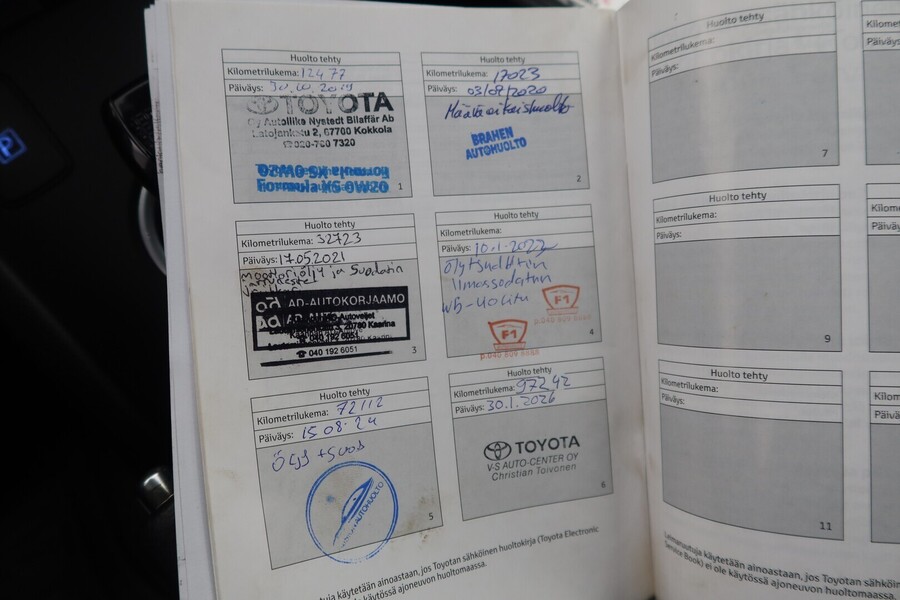 Huolto tehty
Kilometrilukema: 12477
Päiväys: 30.10.2019
TOYOTA
Oy Autoliike Nystedt Bilaffär Ab
Latojankatu 2, 67700 Kokkola
020-760 7320
Formula XS 0W20
1
Huolto tehty
Kilometrilukema: 17023
Päiväys: 03/09/2020
Määräaikaishuolto
BRAHEN
AUTOHUOLTO
2
Huolto tehty
Kilometrilukema: 32723
Päiväys: 17.05.2021
moottoriöljy ja Suodatin
ad AD-AUTOKORJAAMO
20780 Kaarina
040 192 6051
☎ 040 192 6051
3
Huolto tehty
Kilometrilukema:
Päiväys: 10.1-2022
F1
F1
4
Huolto tehty
Kilometrilukema: 72112
Päiväys: 15 08-24
Öljy + suod
AUTOHUOLTO
5
Huolto tehty
Kilometrilukema: 97242
Päiväys: 30.1.2026
TOYOTA
V-S AUTO-CENTER OY
Christian Toivonen
6
käytetään ainoastaan, jos Toyotan sähköinen huoltokirja (Toyota Electronic
ei ole käytössä ajoneuvon huoltomaassa.
Huolto tehty
Kilometrilukema:
Päiväys:
7
Huolto tehty
Kilometrilukema:
Päiväys:
9
Huolto tehty
Kilometrilukema:
Päiväys:
11
Kilome
Päiväys
Kilom
Päivä
Kilom
Päivä
Leimaruutuja käytetään ainoastaan, jos Toyotan sähköinen
Service Book) ei ole käytössä ajoneuvon huoltomaassa.